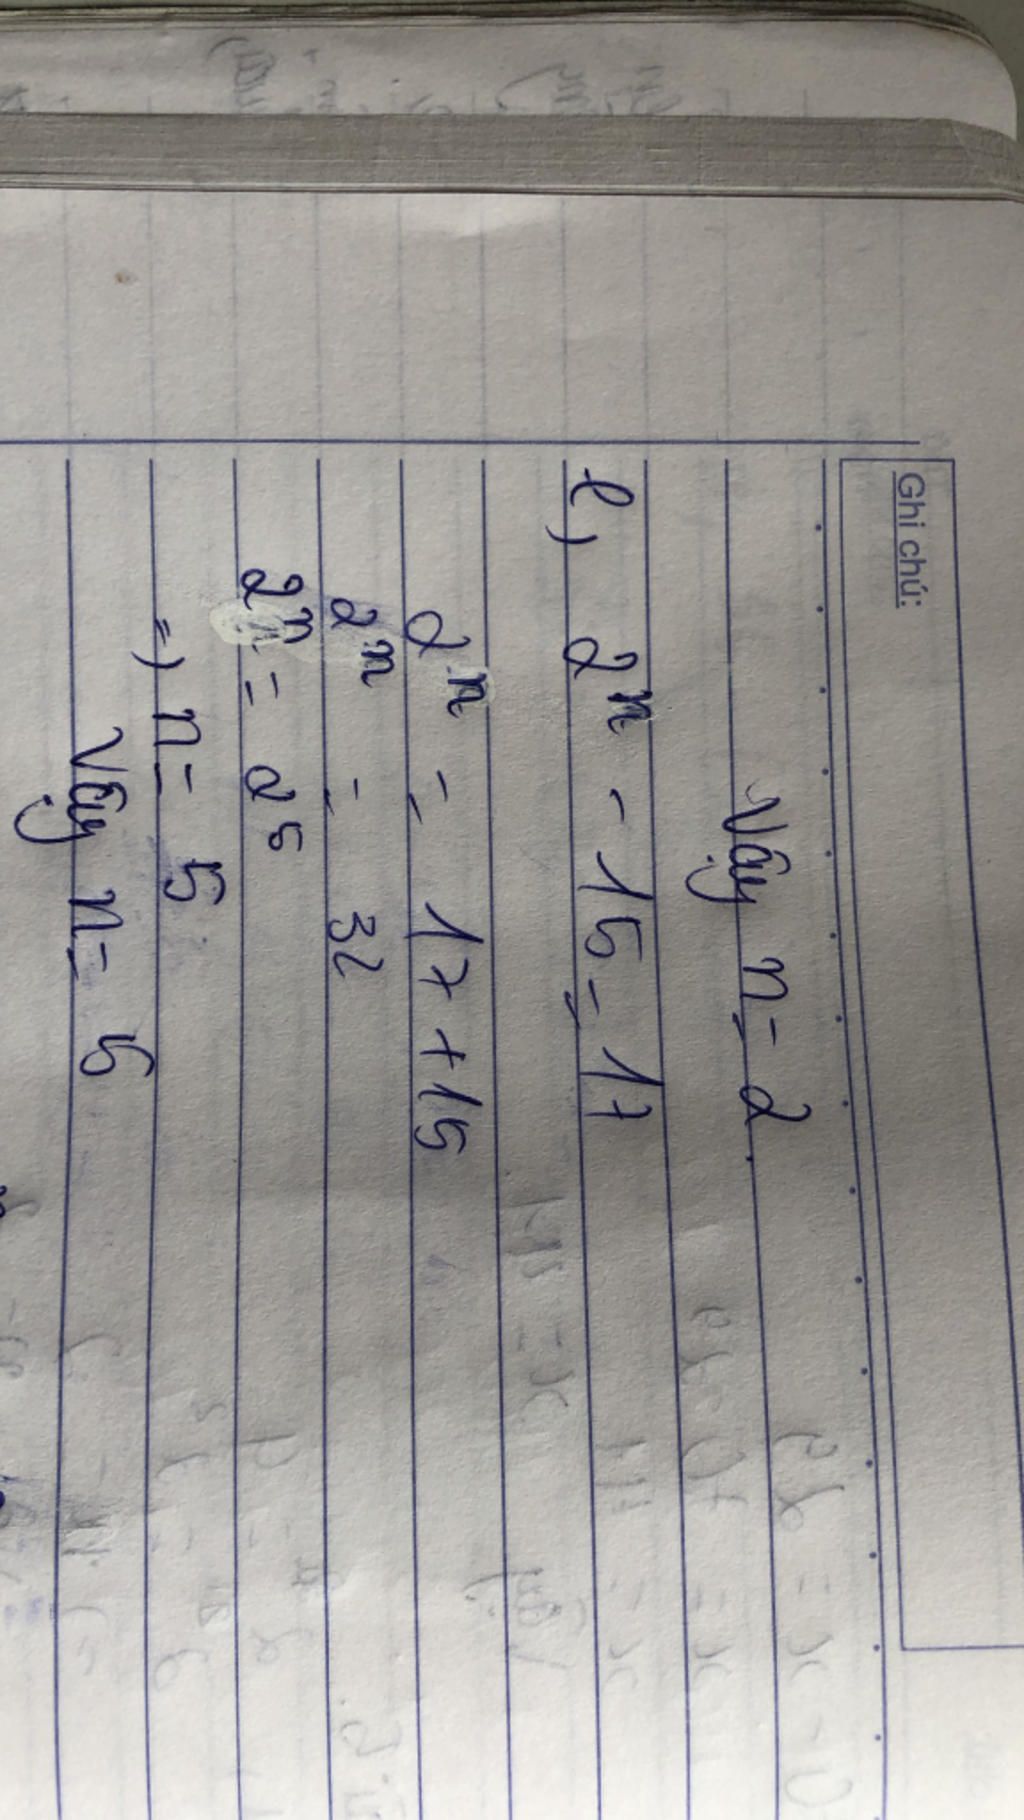 Ghi chú:
Vậy n = 2.
e, 2ⁿ - 15 = 17
2ⁿ = 17 + 15
2ⁿ = 32
2ⁿ = 2⁵
=) n = 5
Vậy n = 5